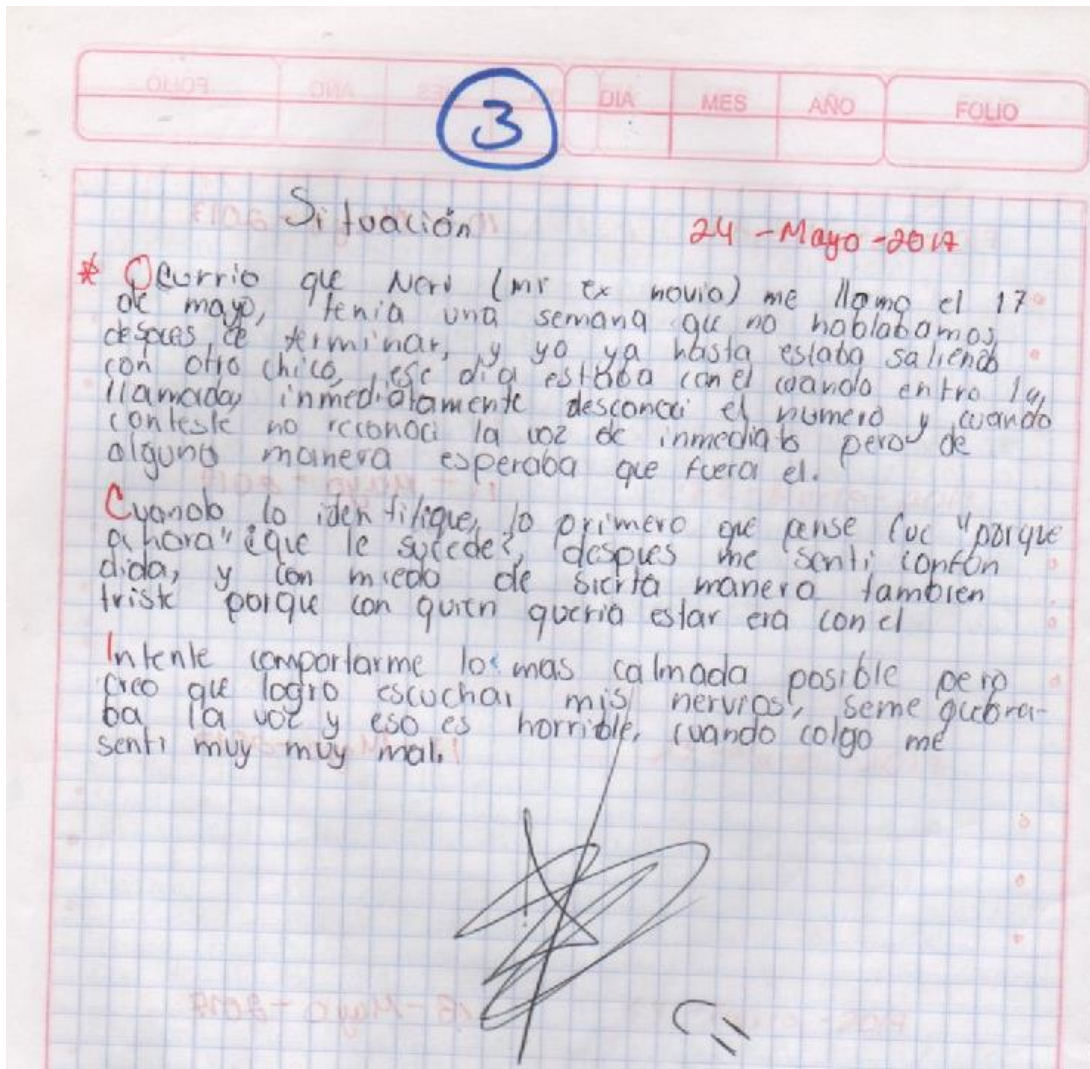 DIA MES AÑO FOLIO
3
Situación 24 - Mayo - 2017
* Ocurrio que Nery (mi ex novio) me llamo el 17
de mayo, tenia una semana que no hablabamos
despues de terminar, y yo ya hasta estaba saliendo
con otro chico, ese dia estaba con el cuando entro la
llamada, inmediatamente desconoci el numero y cuando
conteste no reconoci la voz de inmediato pero de
alguna manera esperaba que fuera el.
Cuando lo identifique, lo primero que pense fue "porque
ahora" ¿que le sucede?, despues me senti confun
dida, y con miedo de sierta manera tambien
triste porque con quien queria estar era con el
Intente comportarme lo mas calmada posible pero
creo que logro escuchar mis nervios, seme quebra-
ba la voz y eso es horrible, cuando colgo me
senti muy muy mal.